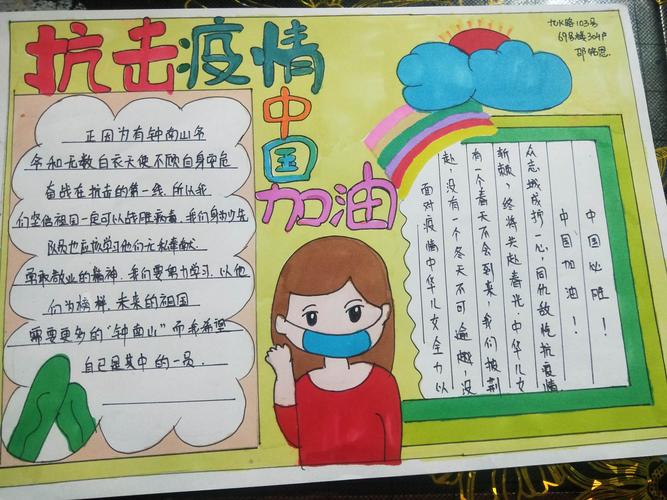 抗击疫情
中国
加油
103号
69号楼304户
正因为有钟南山爷
爷和无数白衣天使不顾自身安危
奋战在抗击的第一线，所以我
们坚信祖国一定可以战胜病毒。我们身为少先
队员也应做学习他们无私奉献、
勇敢敬业的精神。我们要努力学习，以他
们为榜样，未来的祖国
需要更多的“钟南山”而我希望
自己是其中的一员。
面对疫情中华儿女全力以
赴，没有一个冬天不可逾越，没
有一个春天不会到来，我们披荆
斩棘，终将共赴春光。中华儿女
众志城成护一心，同仇敌忾抗疫情
中国加油！
中国必胜！